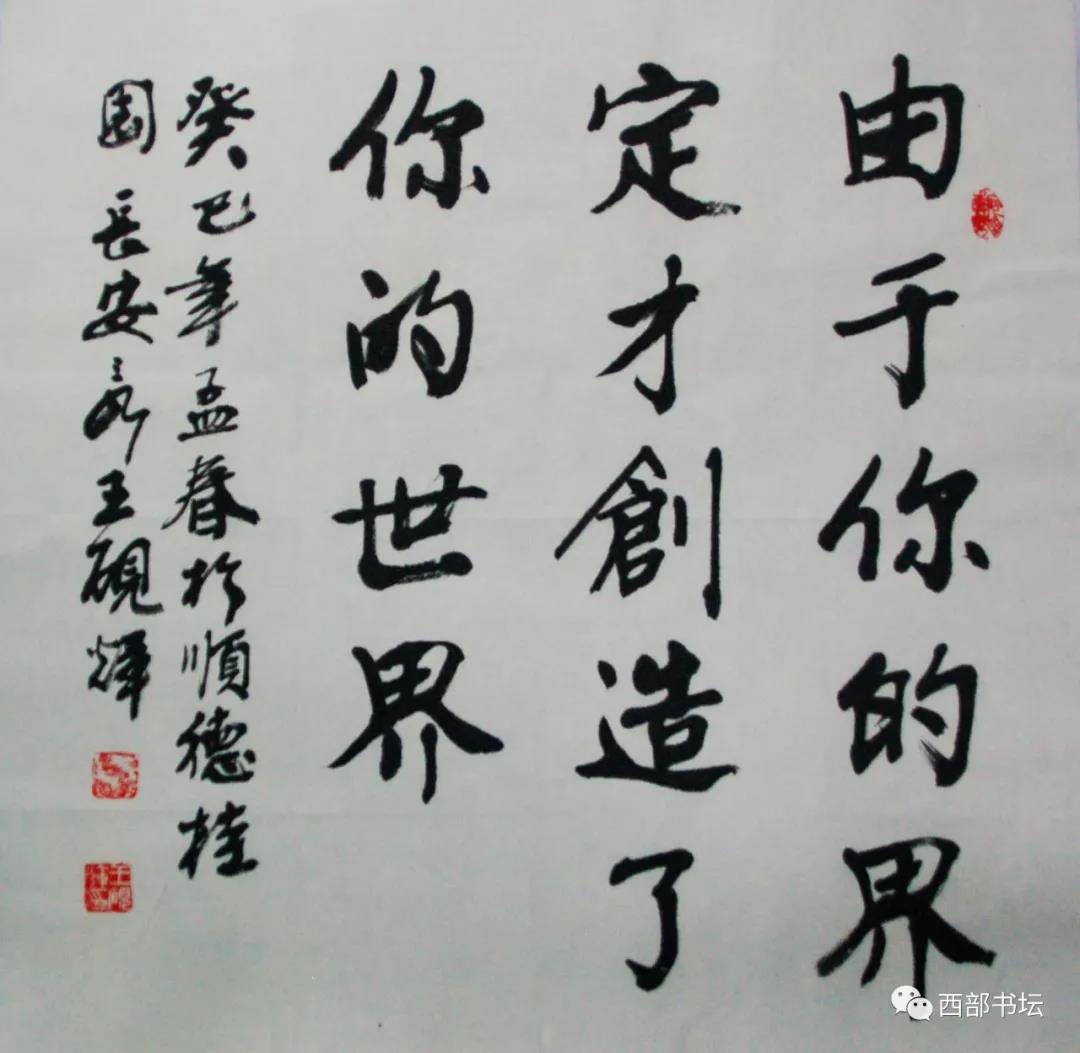 由于你的界
定才創造了
你的世界
癸巳年孟春於順德桂
園 長安客王硯輝
西部书坛